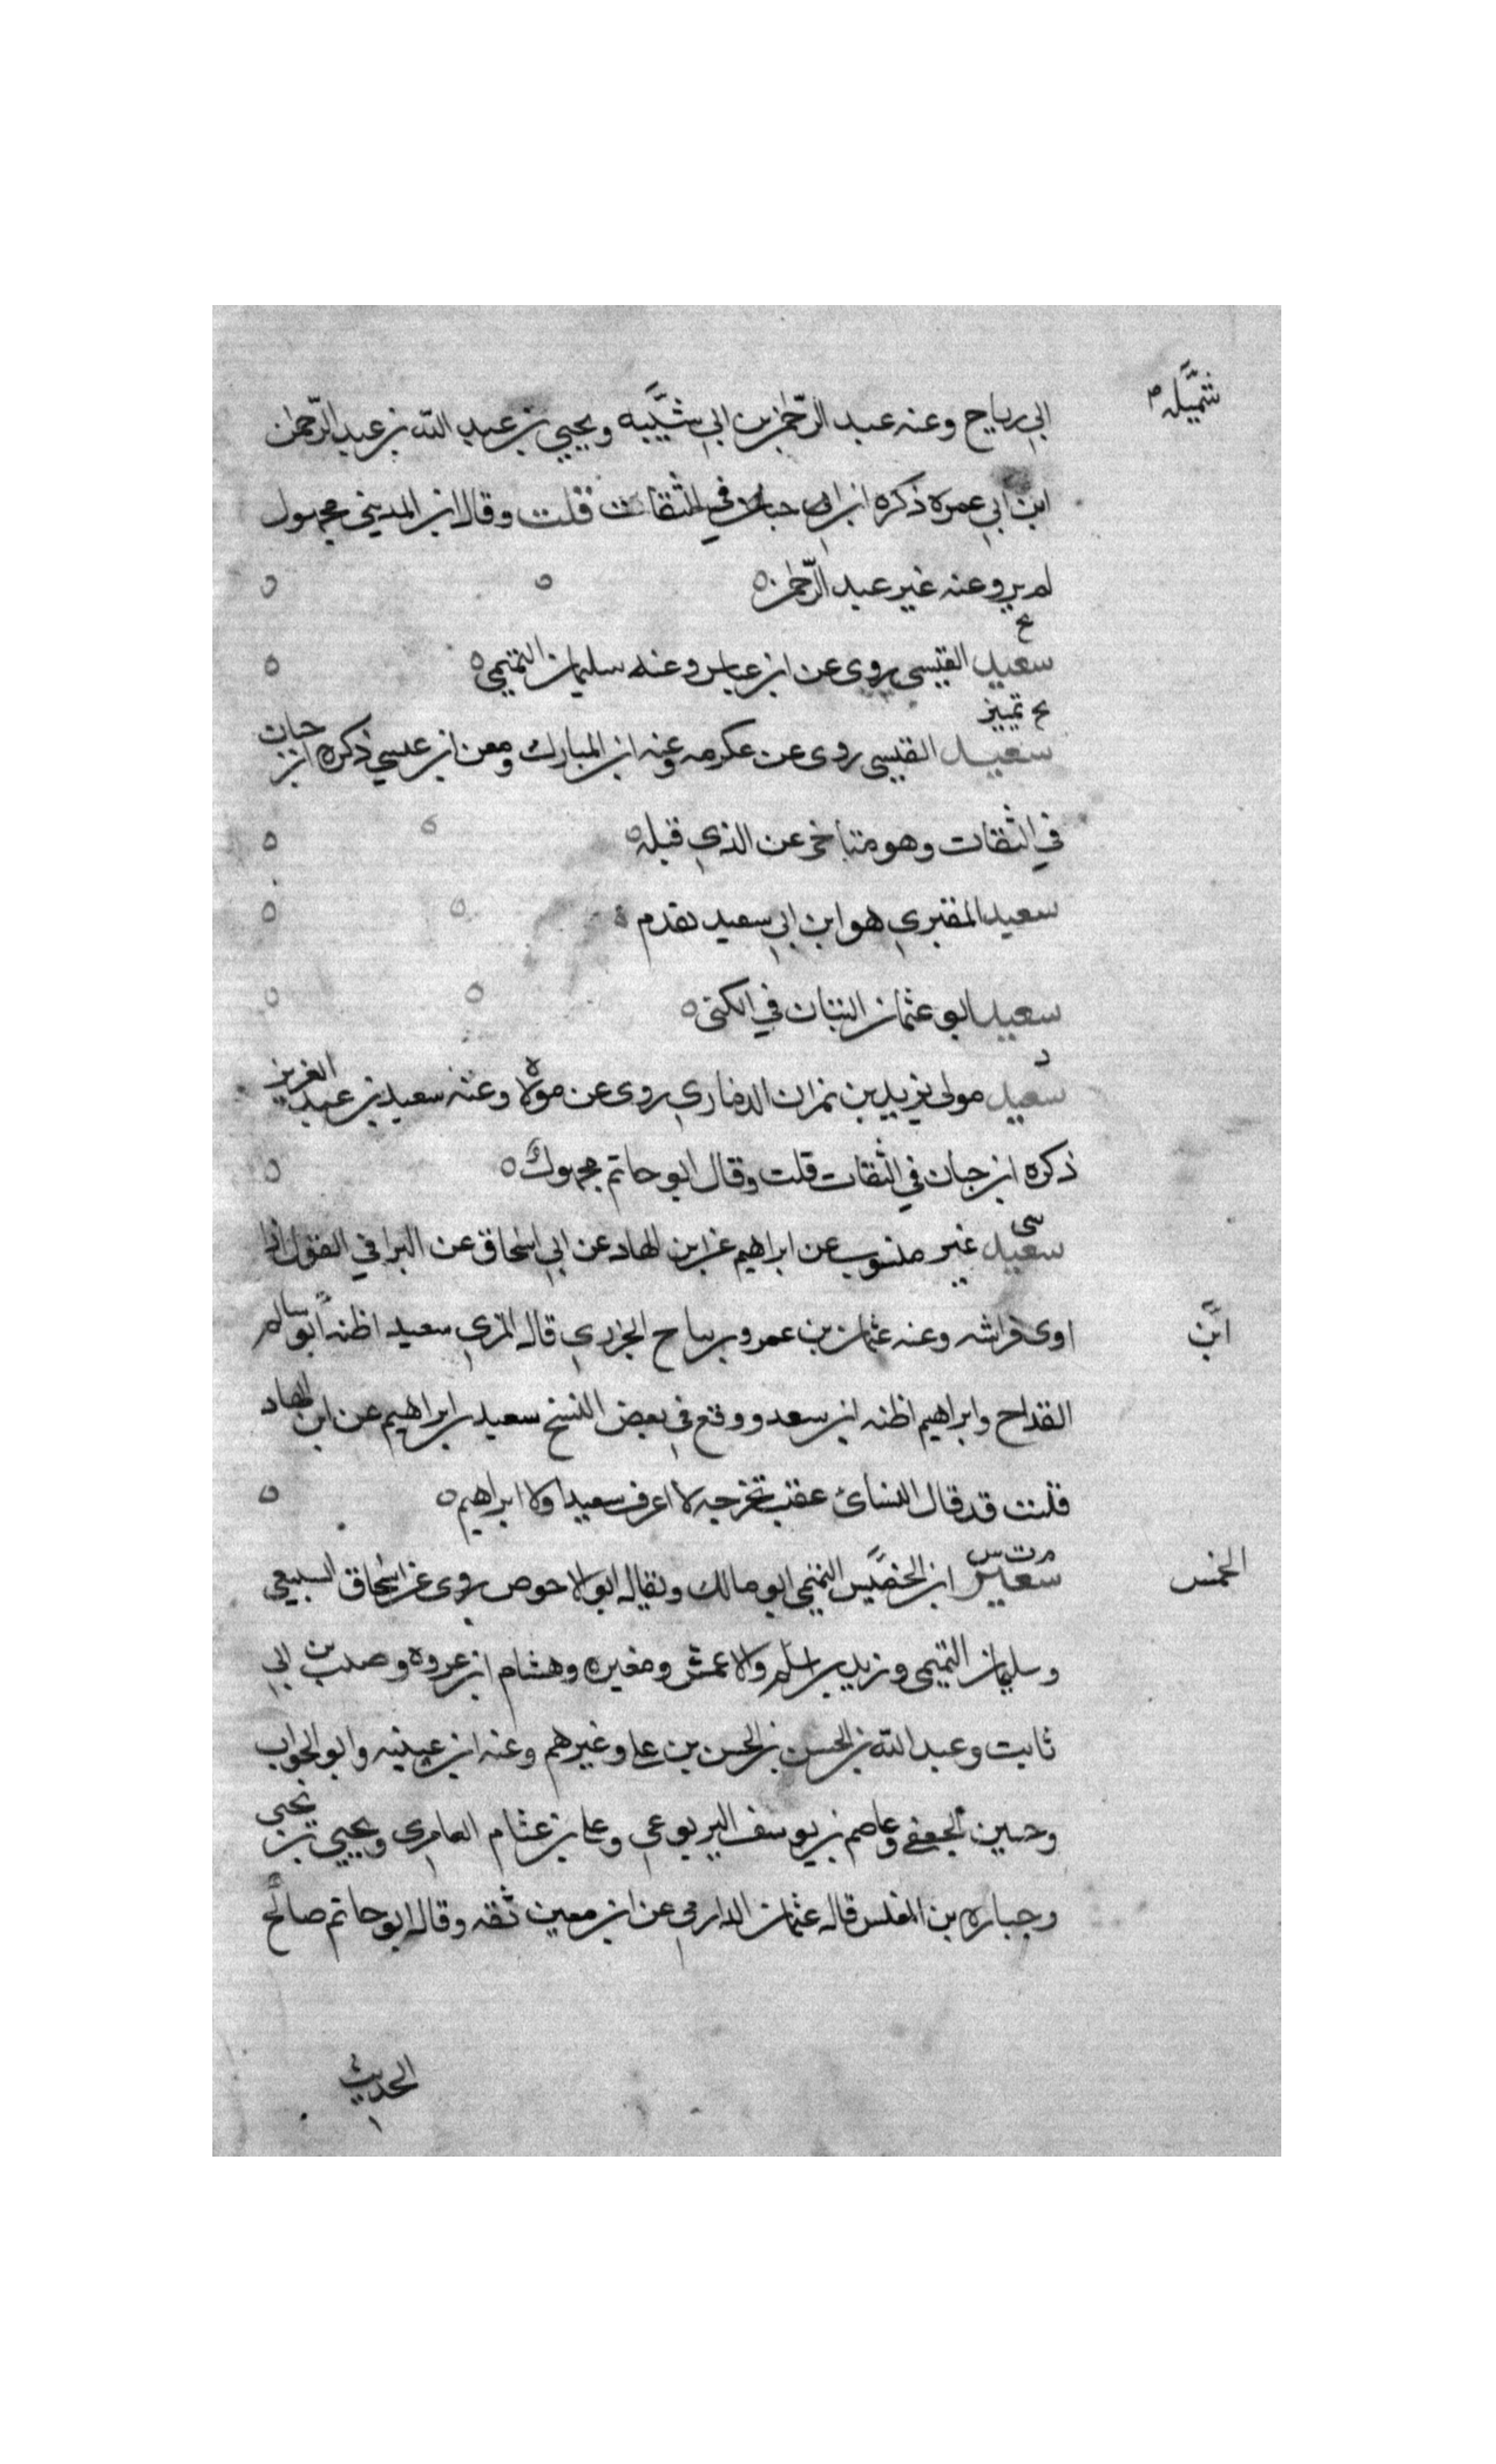 شميله صـ
ابي رباح وعنه عبد الرحمن بن ابي شيبه ويحيي بن عبد الله بن عبد الرحمن
ابن ابي عمره ذكره ابن حبان في الثقات قلت وقال ابن المديني مجهول
لم يرو عنه غير عبد الرحمن ه
سعيد القيسي روى عن ابن عباس وعنه سليمان التيمي ه
تمييز
سعيد القيسي روى عن عكرمه وعنه ابن المبارك ومعن ابن عيسي ذكره ابن حبان
في الثقات وهو متاخر عن الذي قبله ه
سعيد المقبري هو ابن ابي سعيد تقدم ه
سعيد ابو عثمان التبان في الكنى ه
د
سعيد مولى يزيد بن نمران الذماري روى عن مولاه وعنه سعيد بن عبد العزيز
ذكره ابن حبان في الثقات قلت وقال ابو حاتم مجهول ه
سي
سعيد غير منسوب عن ابراهيم عن ابن الهاد عن ابي اسحاق عن البرا في القول اذا
اوى فراشه وعنه عثمان بن عمرو بن ساح الجزري قال المزي سعيد اظنه ابن سالم
ابن
القداح وابراهيم اظنه ابن سعد ووقع في بعض النسخ سعيد بن ابراهيم عن ابن الهاد
قلت قد قال النسائ عقب تخريجه لا اعرف سعيدا ولا ابراهيم ه
م ت س
سعير ابن الخميس التميمي ابو مالك ويقال ابو الاحوص روى عن اسحاق السبيعي
الخمس
وسليمان التيمي وزيد بن اسلم والاعمش ومغيره وهشام ابن عروه وحبيب بن ابي
ثابت وعبد الله بن الحسن بن الحسن بن علي وغيرهم وعنه ابن عيينه وابو الجواب
وحسين الجعفي وعاصم بن يوسف اليربوعي وعلي بن عثام العامري ويحيي بن يحيى
وجباره بن المغلس قال عثمان الدارمي عن ابن معين ثقه وقال ابو حاتم صالح
الحديث